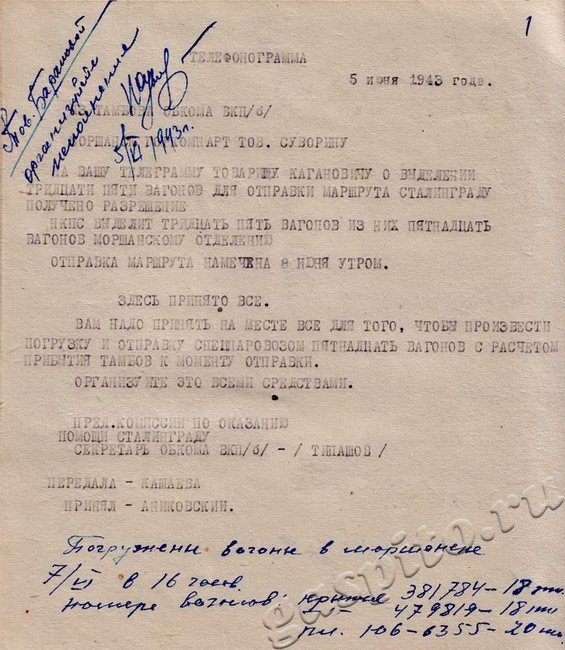 1
Тов. Барашкой
организуйте
исполнение
5/VI 1943г.
ТЕЛЕФОНОГРАММА
5 июня 1943 года.
ИЗ ТАМБОВА ОБКОМА ВКП/б/
МОРШАНСК ТОВ. СУВОРИНУ
НА ВАШУ ТЕЛЕГРАММУ ТОВАРИЩУ КАГАНОВИЧУ О ВЫДЕЛЕНИИ
ТРИДЦАТИ ПЯТИ ВАГОНОВ ДЛЯ ОТПРАВКИ МАРШРУТА СТАЛИНГРАДУ
ПОЛУЧЕНО РАЗРЕШЕНИЕ
НКПС ВЫДЕЛИТ ТРИДЦАТЬ ПЯТЬ ВАГОНОВ ИЗ НИХ ПЯТНАДЦАТЬ
ВАГОНОВ МОРШАНСКОМУ ОТДЕЛЕНИЮ
ОТПРАВКА МАРШРУТА НАМЕЧЕНА 8 ИЮНЯ УТРОМ.
ЗДЕСЬ ПРИНЯТО ВСЕ.
ВАМ НАДО ПРИНЯТЬ НА МЕСТЕ ВСЕ ДЛЯ ТОГО, ЧТОБЫ ПРОИЗВЕСТИ
ПОГРУЗКУ И ОТПРАВКУ СПЕЦПАРОВОЗОМ ПЯТНАДЦАТЬ ВАГОНОВ С РАСЧЕТОМ
ПРИБЫТИЯ ТАМБОВ К МОМЕНТУ ОТПРАВКИ.
ОРГАНИЗУЙТЕ ЭТО ВСЕМИ СРЕДСТВАМИ.
ПРЕД.КОМИССИИ ПО ОКАЗАНИЮ
ПОМОЩИ СТАЛИНГРАДУ
СЕКРЕТАРЬ ОБКОМА ВКП/б/ - / ТИПАШОВ /
ПЕРЕДАЛА - КАШАЕВА
ПРИНЯЛ - АНИКОВСКИЙ.
gaspito.ru
Погружены вагоны в моршанске
7/VI в 16 часов.
номера вагонов: крытые 381784 - 18 тн.
479819 - 18 тн
пл. 106-6355 - 20 тн.